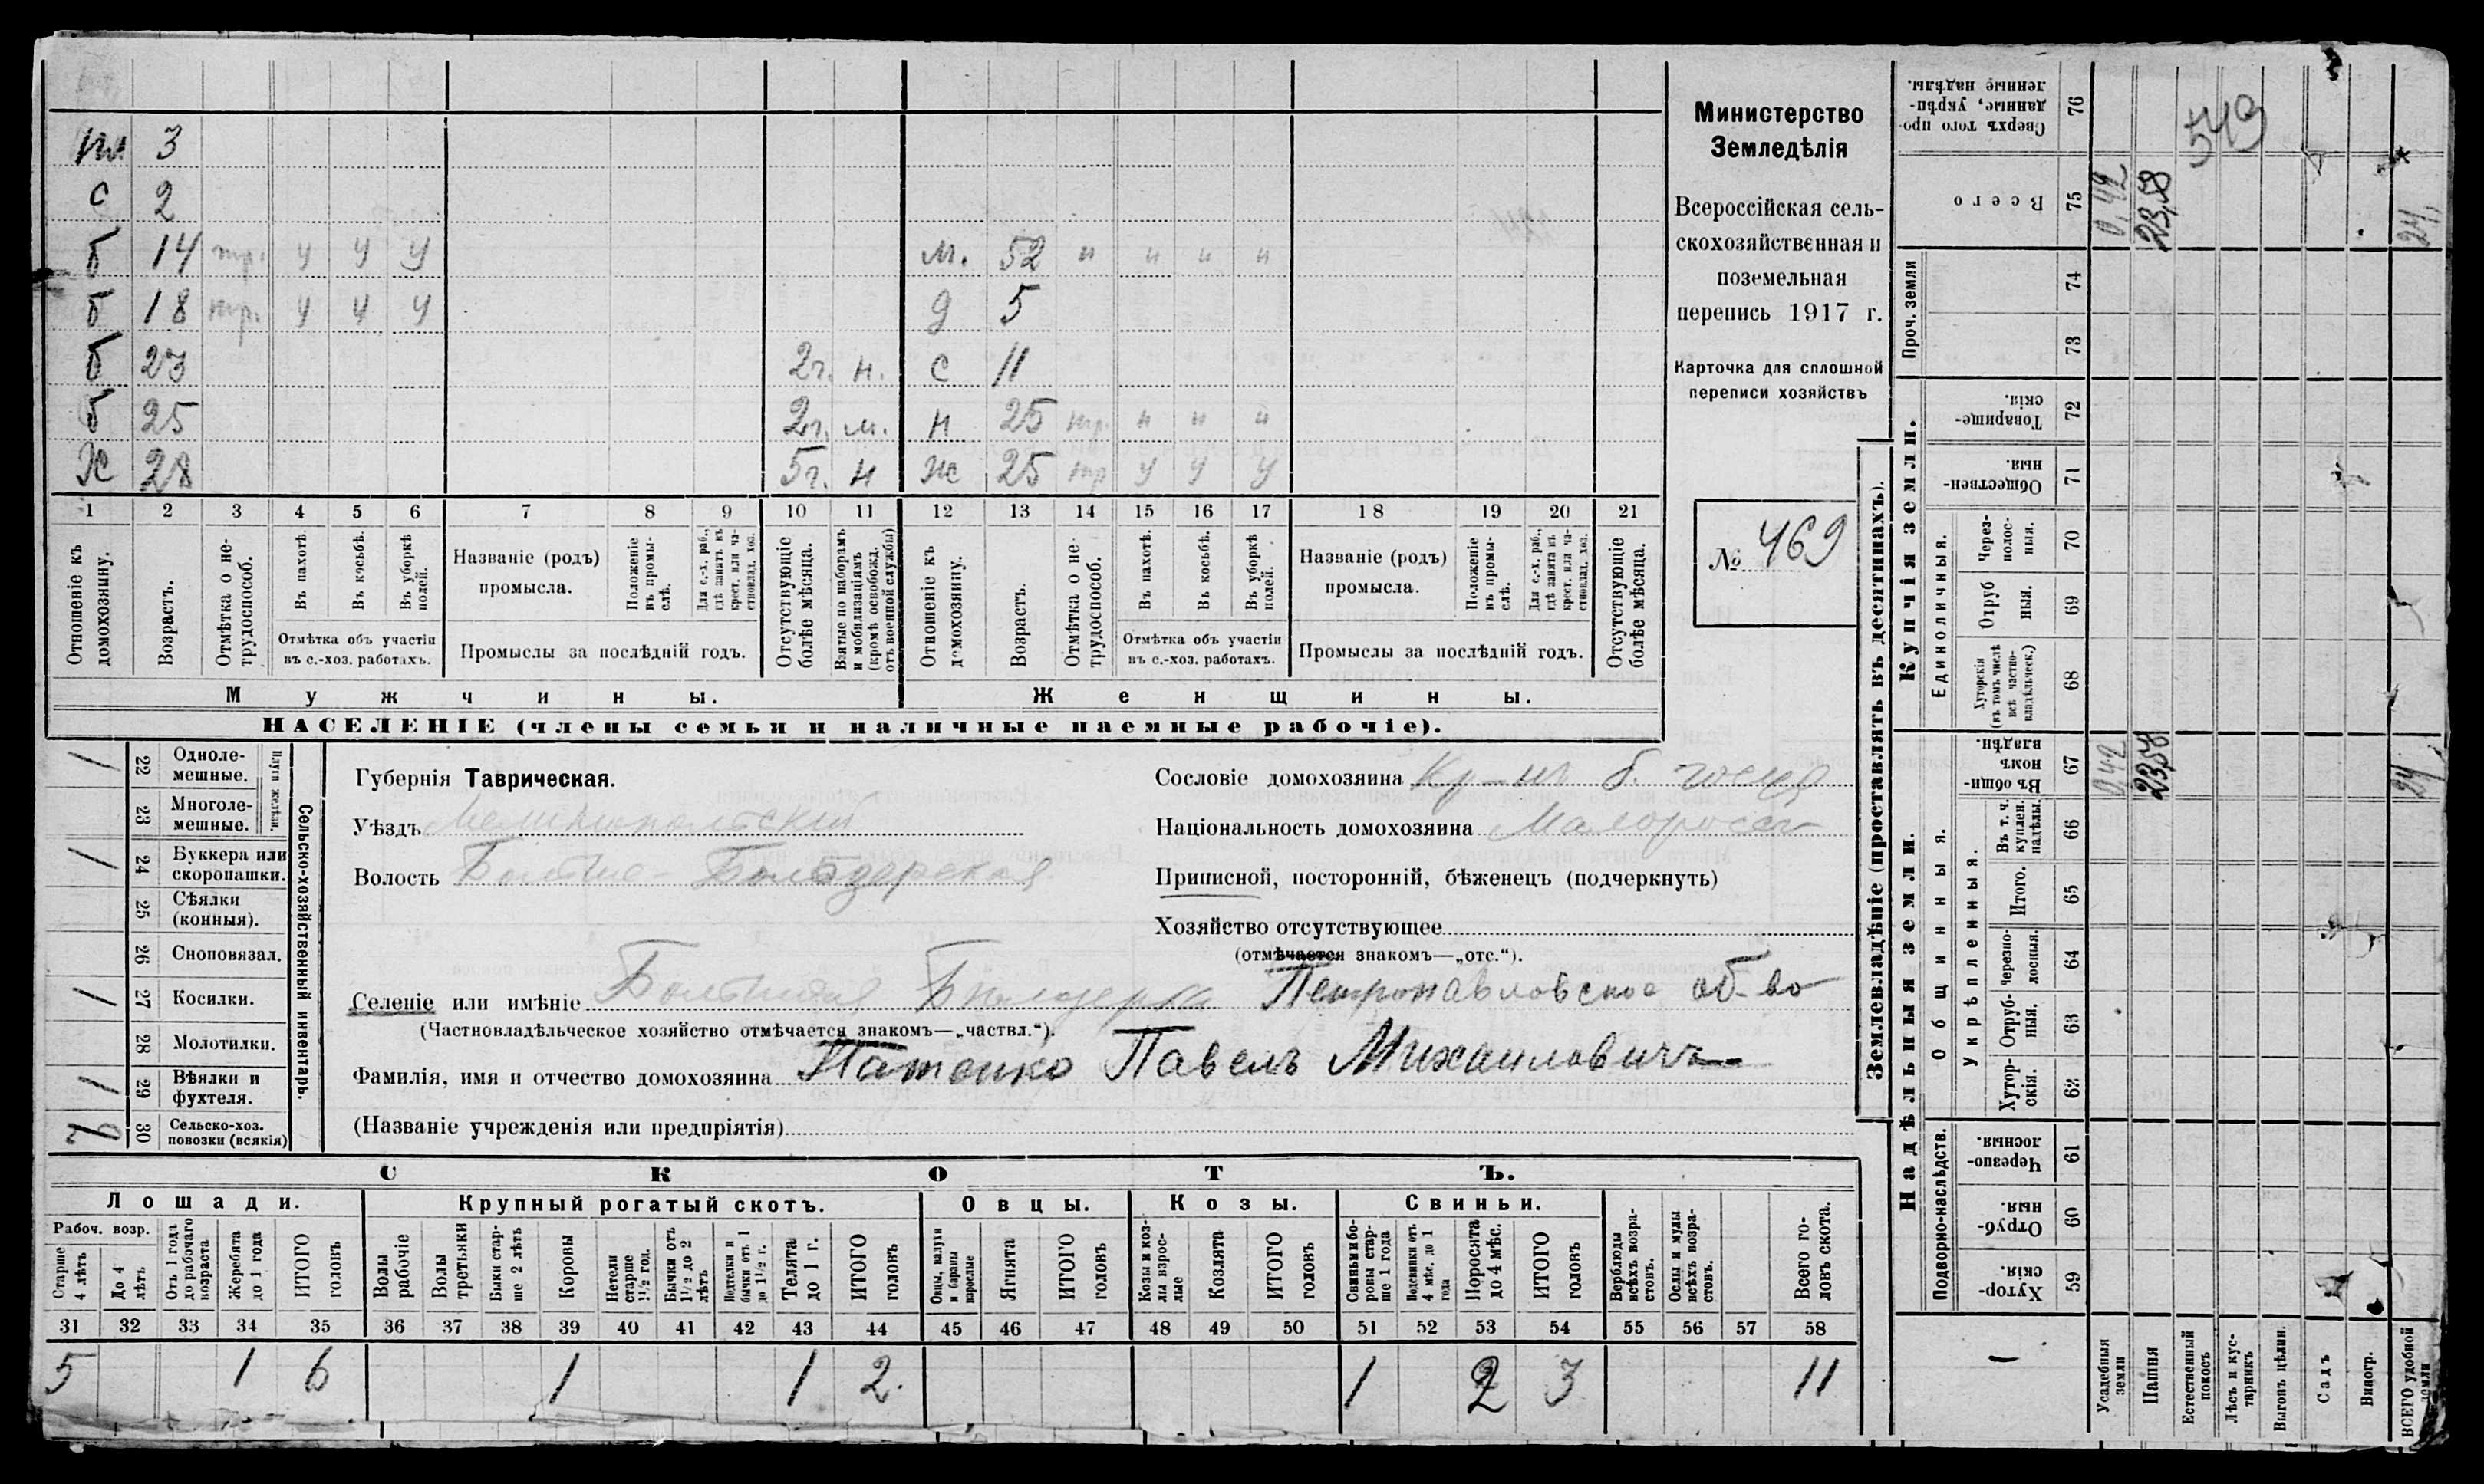 м 3
с 2
б 14 тр. у у у м. 52 н н н н
б 18 тр. у у у д 5
б 23 2г. н. с 11
б 25 2г. м. н 25 тр. н н н
Ж 28 5г. н ж 25 тр у у у
1 2 3 4 5 6 7 8 9 10 11 12 13 14 15 16 17 18 19 20 21
Отношеніе къ домохозяину.
Возрастъ.
Отмѣтка о нетрудоспособ.
Въ пахотѣ.
Въ косьбѣ.
Въ уборкѣ полей.
Отмѣтка объ участіи
въ с.-хоз. работахъ.
Названіе (родъ)
промысла.
Положеніе въ промыслѣ.
Для с.-х. раб., гдѣ занятъ въ крест. или частновлад. хоз.
Промыслы за послѣдній годъ.
Отсутствующіе болѣе мѣсяца.
Взятые по наборамъ и мобилизаціямъ (кромѣ освобожд. отъ военной службы)
Отношеніе къ домохозяину.
Возрастъ.
Отмѣтка о нетрудоспособ.
Въ пахотѣ.
Въ косьбѣ.
Въ уборкѣ полей.
Отмѣтка объ участіи
въ с.-хоз. работахъ.
Названіе (родъ)
промысла.
Положеніе въ промыслѣ.
Для с.-х. раб., гдѣ занята въ крест. или частновлад. хоз.
Промыслы за послѣдній годъ.
Отсутствующіе болѣе мѣсяца.
Мужчины. Женщины.
НАСЕЛЕНІЕ (члены семьи и наличные наемные рабочіе).
Министерство
Земледѣлія
Всероссійская сель-
скохозяйственная и
поземельная
перепись 1917 г.
Карточка для сплошной
переписи хозяйствъ
№ 469
Сельско-хозяйственный инвентарь.
Плуги желѣзн.
1 22 Одноле-
мешные.
23 Многоле-
мешные.
1 24 Буккера или
скоропашки.
25 Сѣялки
(конныя).
26 Сноповязал.
1 27 Косилки.
28 Молотилки.
1 29 Вѣялки и
фухтеля.
30 Сельско-хоз.
повозки (всякія)
Губернія Таврическая.
Уѣздъ Мелитопольскій
Волость Больше-Бѣлозерская
Сословіе домохозяина Кр-нъ б. госуд
Національность домохозяина Малоросс
Приписной, посторонній, бѣженецъ (подчеркнуть)
Хозяйство отсутствующее
(отмѣчается знакомъ—„отс.“).
Селеніе или имѣніе Большая Бѣлозерка Петропавловское об-во
(Частновладѣльческое хозяйство отмѣчается знакомъ—„частвл.“).
Фамилія, имя и отчество домохозяина Натенко Павелъ Михаиловичъ
(Названіе учрежденія или предпріятія)
СКОТЪ.
Лошади. Крупный рогатый скотъ. Овцы. Козы. Свиньи.
Рабоч. возр.
Старше 4 лѣтъ
До 4 лѣтъ
Отъ 1 года до рабочаго возраста
Жеребята до 1 года
ИТОГО головъ
Волы рабочіе
Волы третьяки
Быки старше 2 лѣтъ
Коровы
Нетели старше 1½ год.
Бычки отъ 1½ до 2 лѣтъ
Нетелки и бычки отъ 1 до 1½ г.
Телята до 1 г.
ИТОГО головъ
Овцы, валухи и бараны взрослые
Ягнята
ИТОГО головъ
Козы и козлы взрослые
Козлята
ИТОГО головъ
Свиньи боровы старше 1 года
Подсвинки отъ 4 мѣс. до 1 года
Поросята до 4 мѣс.
ИТОГО головъ
Верблюды всѣхъ возрастовъ.
Ослы и мулы всѣхъ возрастовъ.
Всего головъ скота.
31 32 33 34 35 36 37 38 39 40 41 42 43 44 45 46 47 48 49 50 51 52 53 54 55 56 57 58
5 1 6 1 1 2. 1 2 3 11
Землевладѣніе (проставлять въ десятинахъ).
Купчія земли.
Надѣльныя земли.
Сверхъ того проданные, укрѣпленные надѣлы. 76
549
Всего 75 0,42 23,58 24,
Проч. земли 74
73
Товарищескія. 72
Общественныя. 71
Единоличныя.
Черезполосныя. 70
Отрубныя. 69
Хуторскія (въ томъ числѣ всѣ частновладѣльческ.) 68
Общинныя.
Въ общин. владѣн. 67 0,42 23,58 24
Укрѣпленныя.
Въ т. ч. куплен. надѣлы. 66
Итого. 65
Черезполосныя. 64
Отрубныя. 63
Хуторскія. 62
Подворно-наслѣдств.
Черезполосныя. 61
Отрубныя. 60
Хуторскія. 59
Усадебныя земли
Пашня
Естественный покосъ
Лѣсъ и кустарникъ
Выгонъ цѣлин.
Садъ
Виногр.
ВСЕГО удобной земли